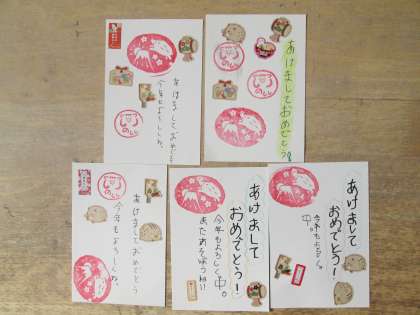 あけましておめでとう
今年もよろしくね。
あけましておめでとう
あけましておめでとう
今年もよろしくね。
あけまして
おめでとう!
今年もよろしく
またあそぼうね!
あけまして
おめでとう!
今年もよろしく